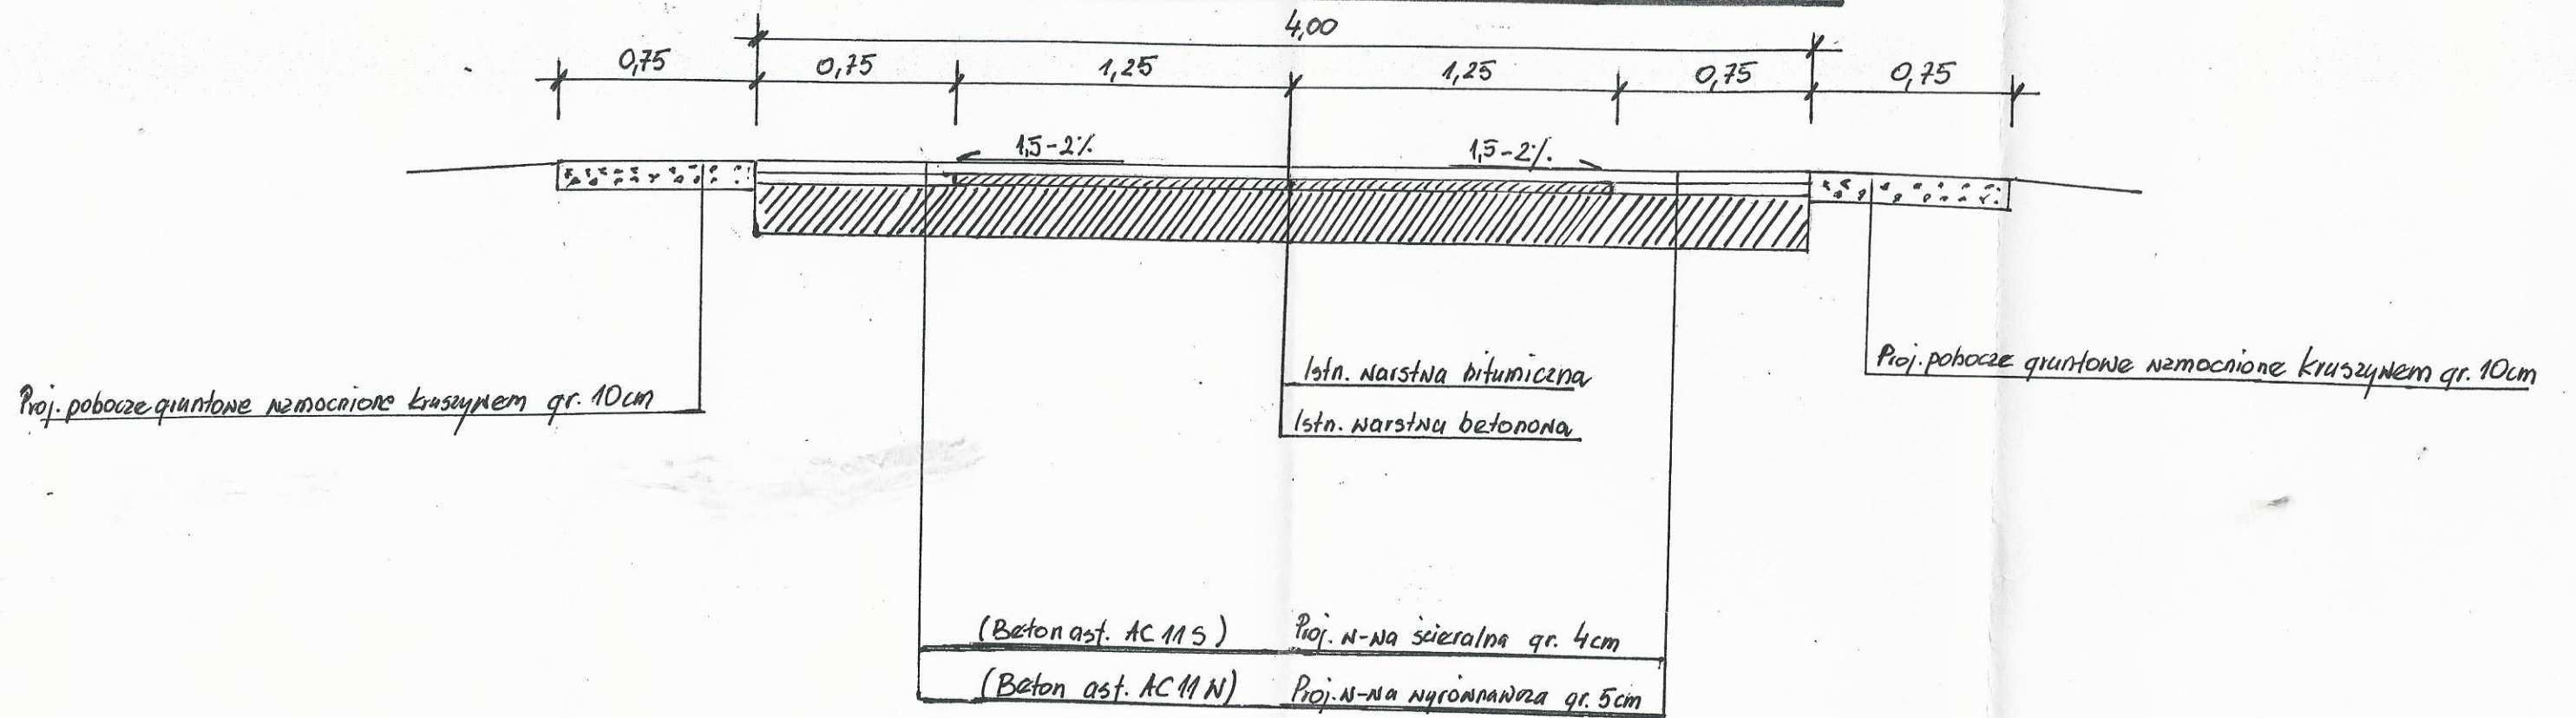 4,00
0,75 0,75 1,25 1,25 0,75 0,75
1,5-2% 1,5-2%.
Istn. warstwa bitumiczna
Istn. warstwa betonowa
Proj. pobocze gruntowe wzmocnione kruszywem gr. 10cm
Proj. pobocze gruntowe wzmocnione kruszywem gr. 10cm
(Beton ast. AC 11 S) Proj. w-wa ścieralna gr. 4cm
(Beton ast. AC 11 W) Proj. w-wa wyrównawcza gr. 5cm